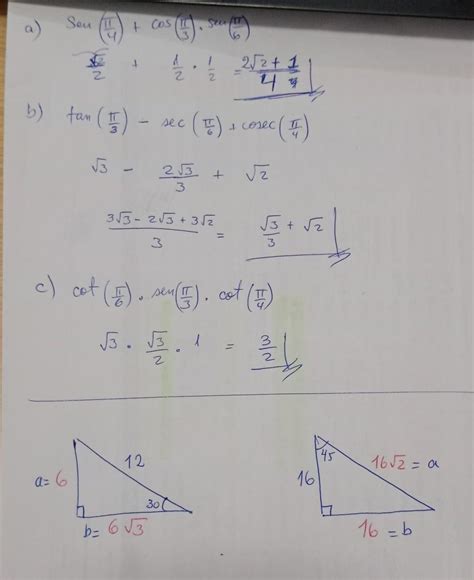 a) Sen(π/4) + cos(π/3) . sen(π/6)
√2/2 + 1/2 . 1/2 = (2√2 + 1)/4
b) tan(π/3) - sec(π/6) + cosec(π/4)
√3 - 2√3/3 + √2
(3√3 - 2√3 + 3√2)/3 = √3/3 + √2
c) cot(π/6) . sen(π/3) . cot(π/4)
√3 . √3/2 . 1 = 3/2
a= 6
12
30
b= 6√3
45
16
16√2 = a
16 = b